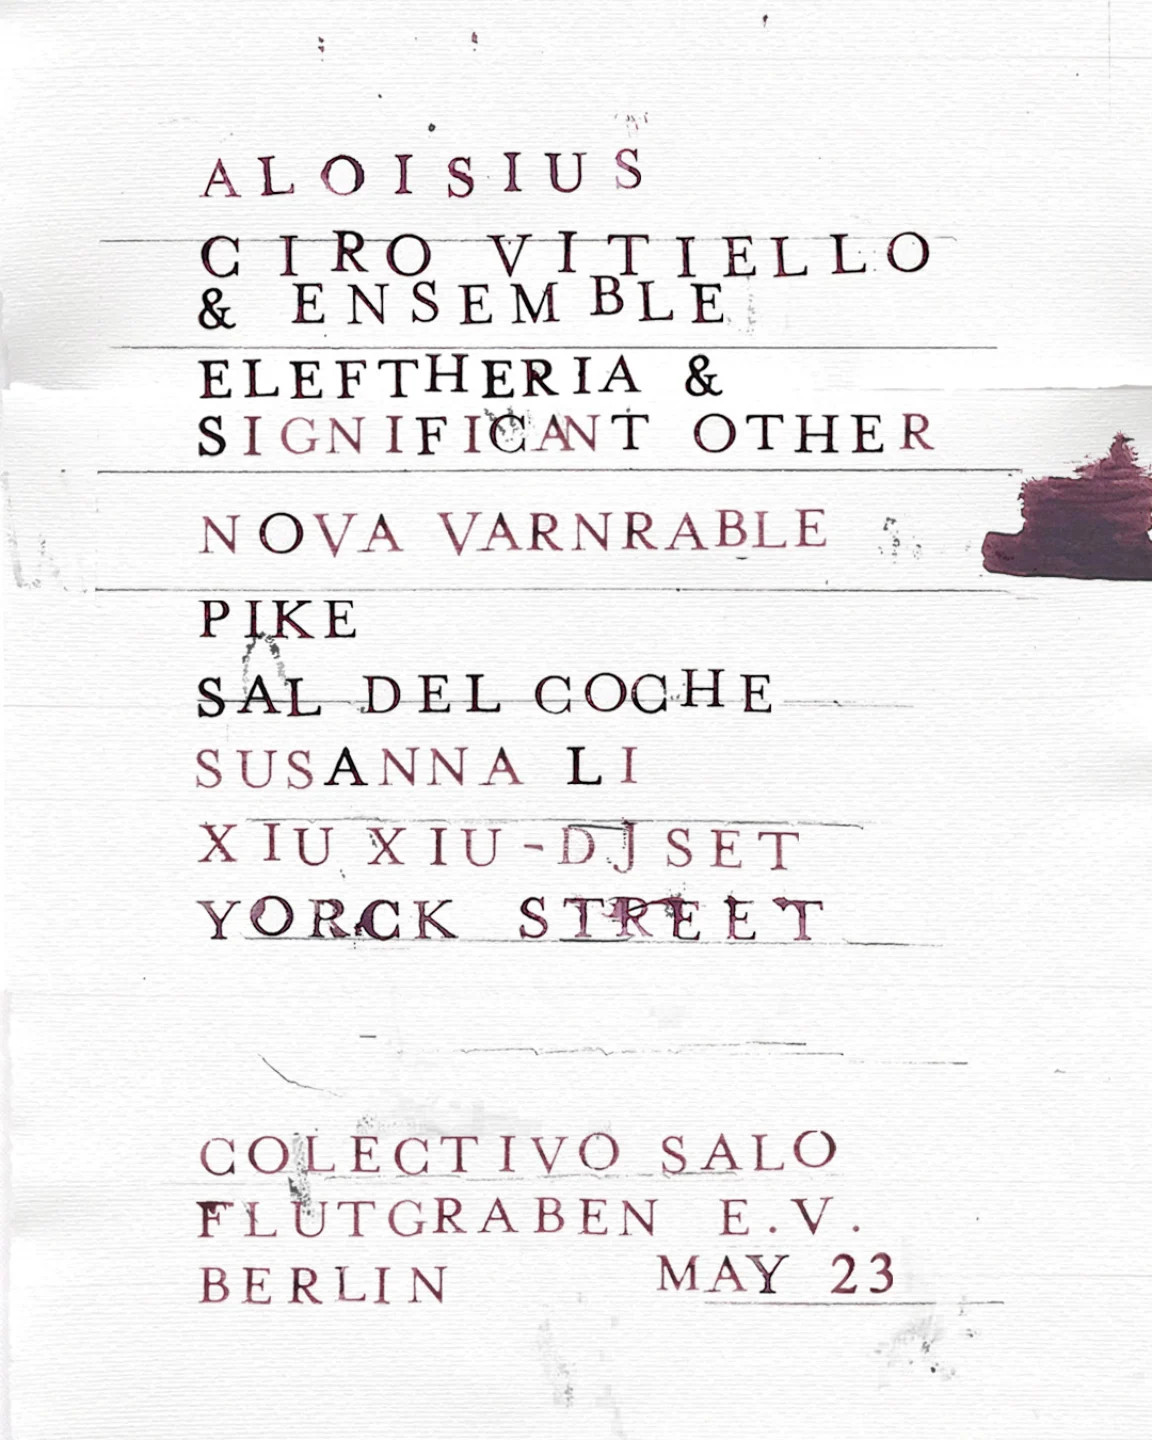 ALOISIUS
CIRO VITIELLO
& ENSEMBLE
ELEFTHERIA &
SIGNIFICANT OTHER
NOVA VARNRABLE
PIKE
SAL DEL COCHE
SUSANNA LI
XIU XIU - DJ SET
YORCK STREET
COLECTIVO SALO
FLUTGRABEN E.V.
BERLIN MAY 23